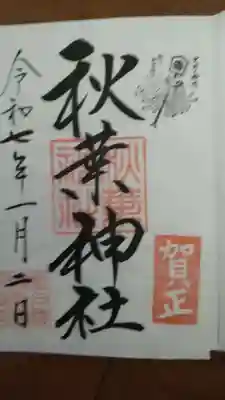 秋葉神社
賀正
令和七年一月二日